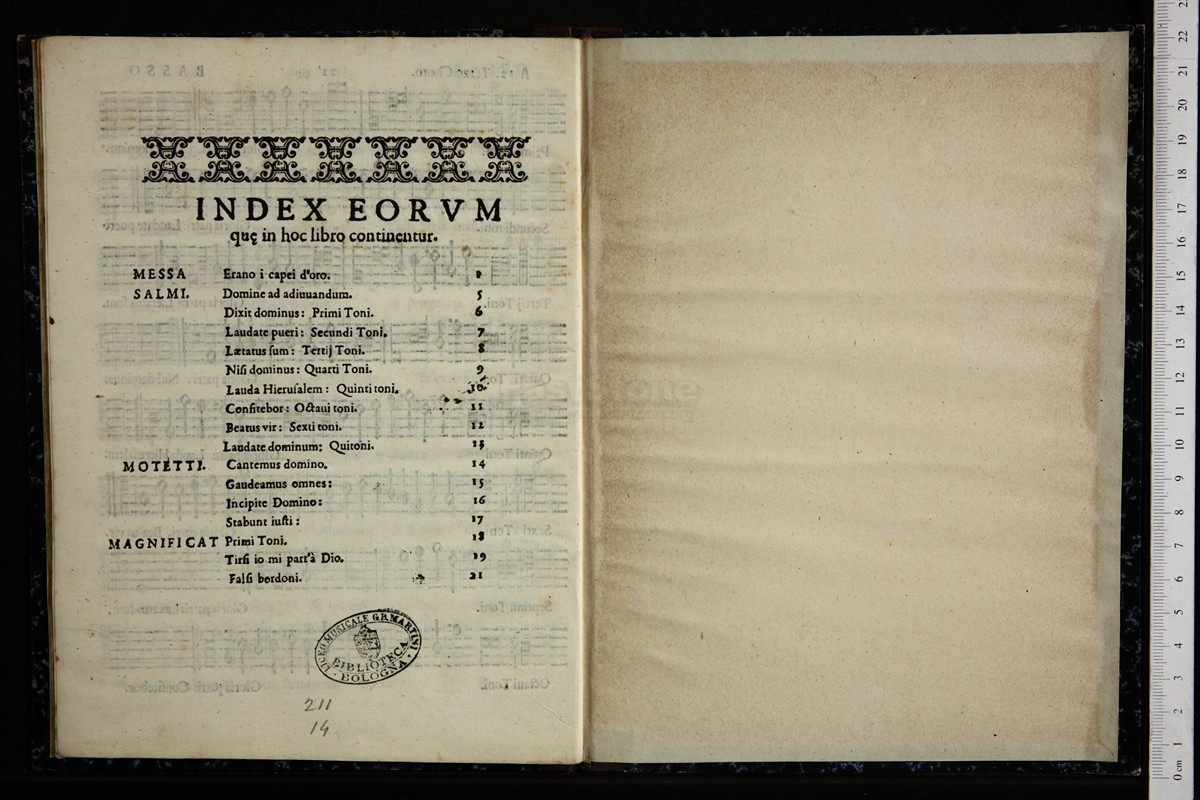 INDEX EORVM
quę in hoc libro continentur.
MESSA Erano i capei d'oro. 1
SALMI. Domine ad adiuuandum. 5
Dixit dominus: Primi Toni. 6
Laudate pueri: Secundi Toni. 7
Lætatus ſum: Tertij Toni. 8
Niſi dominus: Quarti Toni. 9
Lauda Hieruſalem: Quinti toni. 10
Confitebor: Octaui toni. 11
Beatus vir: Sexti toni. 12
Laudate dominum: Quitoni. 13
MOTETTI. Cantemus domino. 14
Gaudeamus omnes: 15
Incipite Domino: 16
Stabunt iuſti: 17
MAGNIFICAT Primi Toni. 18
Tirſi io mi part'à Dio. 19
Falſi bordoni. 21
LICEO MUSICALE G.B. MARTINI
BIBLIOTECA
BOLOGNA
211
14